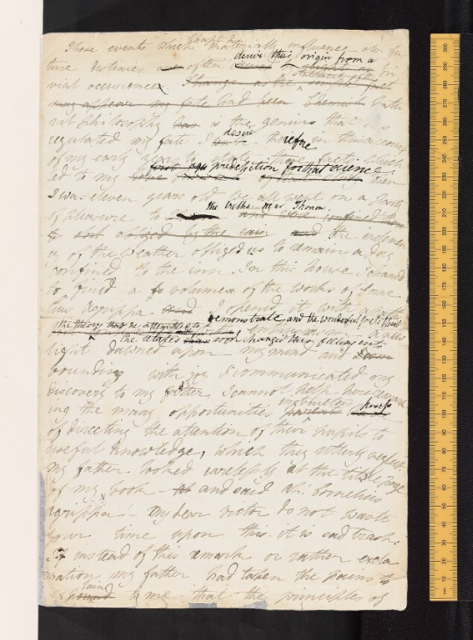 Chapt. 2
Those events which materially influence our fu
ture destinies often derive their origin from a
vial occurrence. Strange as the simple fact
may appear my fate had been Chemistry
ral philosophy is the genius that has
regulated my fate I desire therefore in this account
of my early years to state those facts which
led to my predilection for that science. When
I was eleven years old we all went on a party
of pleasure to the baths near Thonon
obliged by the rain and the inclemen
cy of the weather obliged us to remain a day
confined to the inn. In this house I chanced
to find a volume of the works of Corne
lius Agrippa. I opened it with
the theory that he attempts to demonstrate and the wonderful facts that
he relates soon changed this feeling into
light dawned upon my mind and
bounding with joy I communicated my
discovery to my father. I cannot help here
ing the many opportunities instructors possess
of directing the attention of their pupils to
useful knowledge, which they utterly neglect
my father looked carelessly at the title page
of my book and said ah! Cornelius
Agrippa! My dear Victor do not waste
your time upon this it is sad trash.
If instead of this remark or rather excla
mation my father had taken the pains to
explain to me that the principles of